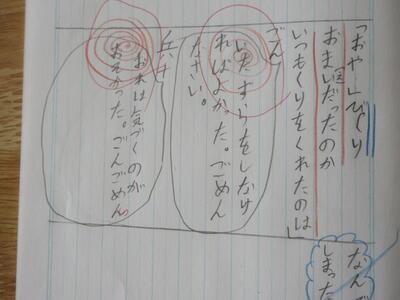 「おや」びくり
おまいだったのか
いつもくりをくれたのは
ごん
いたずらをしなけ
ればよかった。ごめん
なさい。
兵十
おれは気づくのが
おそかった。ごんごめん
なんで
しまった